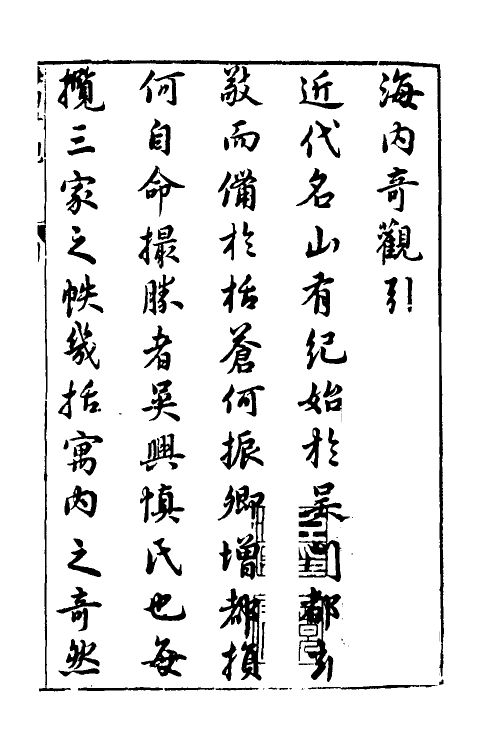 海内奇觀引
近代名山有紀始於吴門都玄
敬而備於栝蒼何振卿增都損
何自命撮勝者吳興慎氏也每
攬三家之帙幾括寓内之奇然